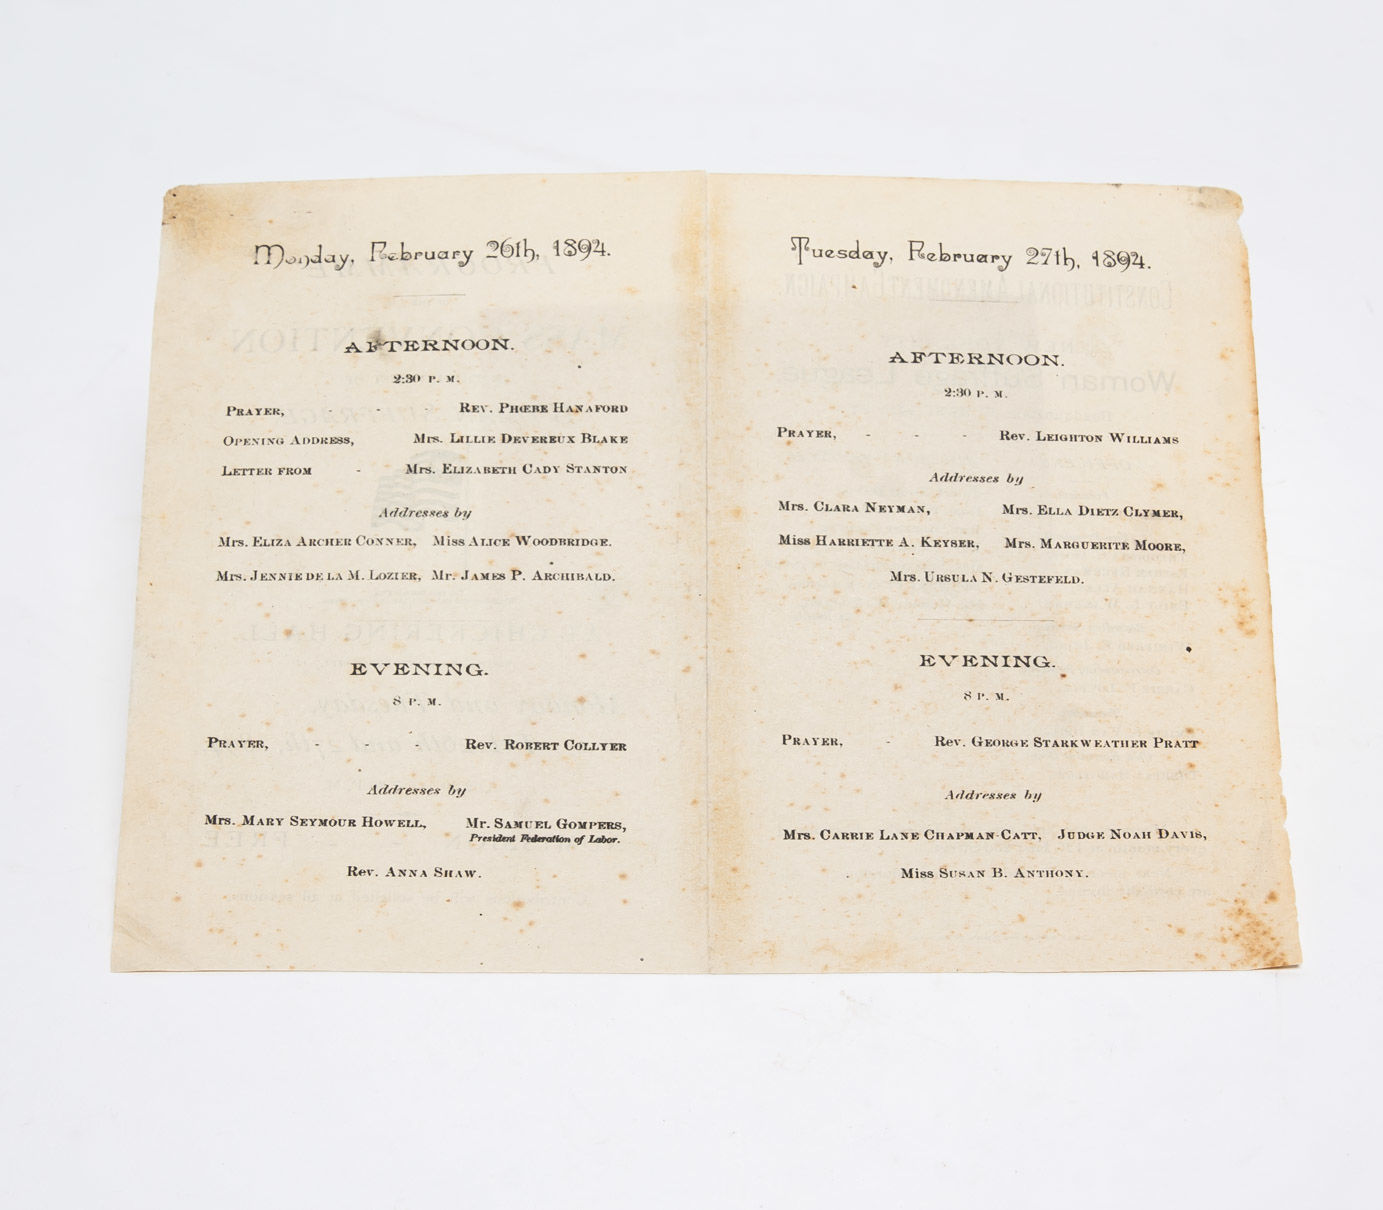 Monday, February 26th, 1894.
AFTERNOON.
2:30 P. M.
PRAYER, - - - REV. PHŒBE HANAFORD
OPENING ADDRESS, MRS. LILLIE DEVEREUX BLAKE
LETTER FROM - MRS. ELIZABETH CADY STANTON
Addresses by
MRS. ELIZA ARCHER CONNER, MISS ALICE WOODBRIDGE.
MRS. JENNIE DE LA M. LOZIER, MR. JAMES P. ARCHIBALD.
EVENING.
8 P. M.
PRAYER, - - - REV. ROBERT COLLYER
Addresses by
MRS. MARY SEYMOUR HOWELL, MR. SAMUEL GOMPERS,
President Federation of Labor.
REV. ANNA SHAW.
Tuesday, February 27th, 1894.
AFTERNOON.
2:30 P. M.
PRAYER, - - - REV. LEIGHTON WILLIAMS
Addresses by
MRS. CLARA NEYMAN, MRS. ELLA DIETZ CLYMER,
MISS HARRIETTE A. KEYSER, MRS. MARGUERITE MOORE,
MRS. URSULA N. GESTEFELD.
EVENING.
8 P. M.
PRAYER, - REV. GEORGE STARKWEATHER PRATT
Addresses by
MRS. CARRIE LANE CHAPMAN-CATT, JUDGE NOAH DAVIS,
MISS SUSAN B. ANTHONY.